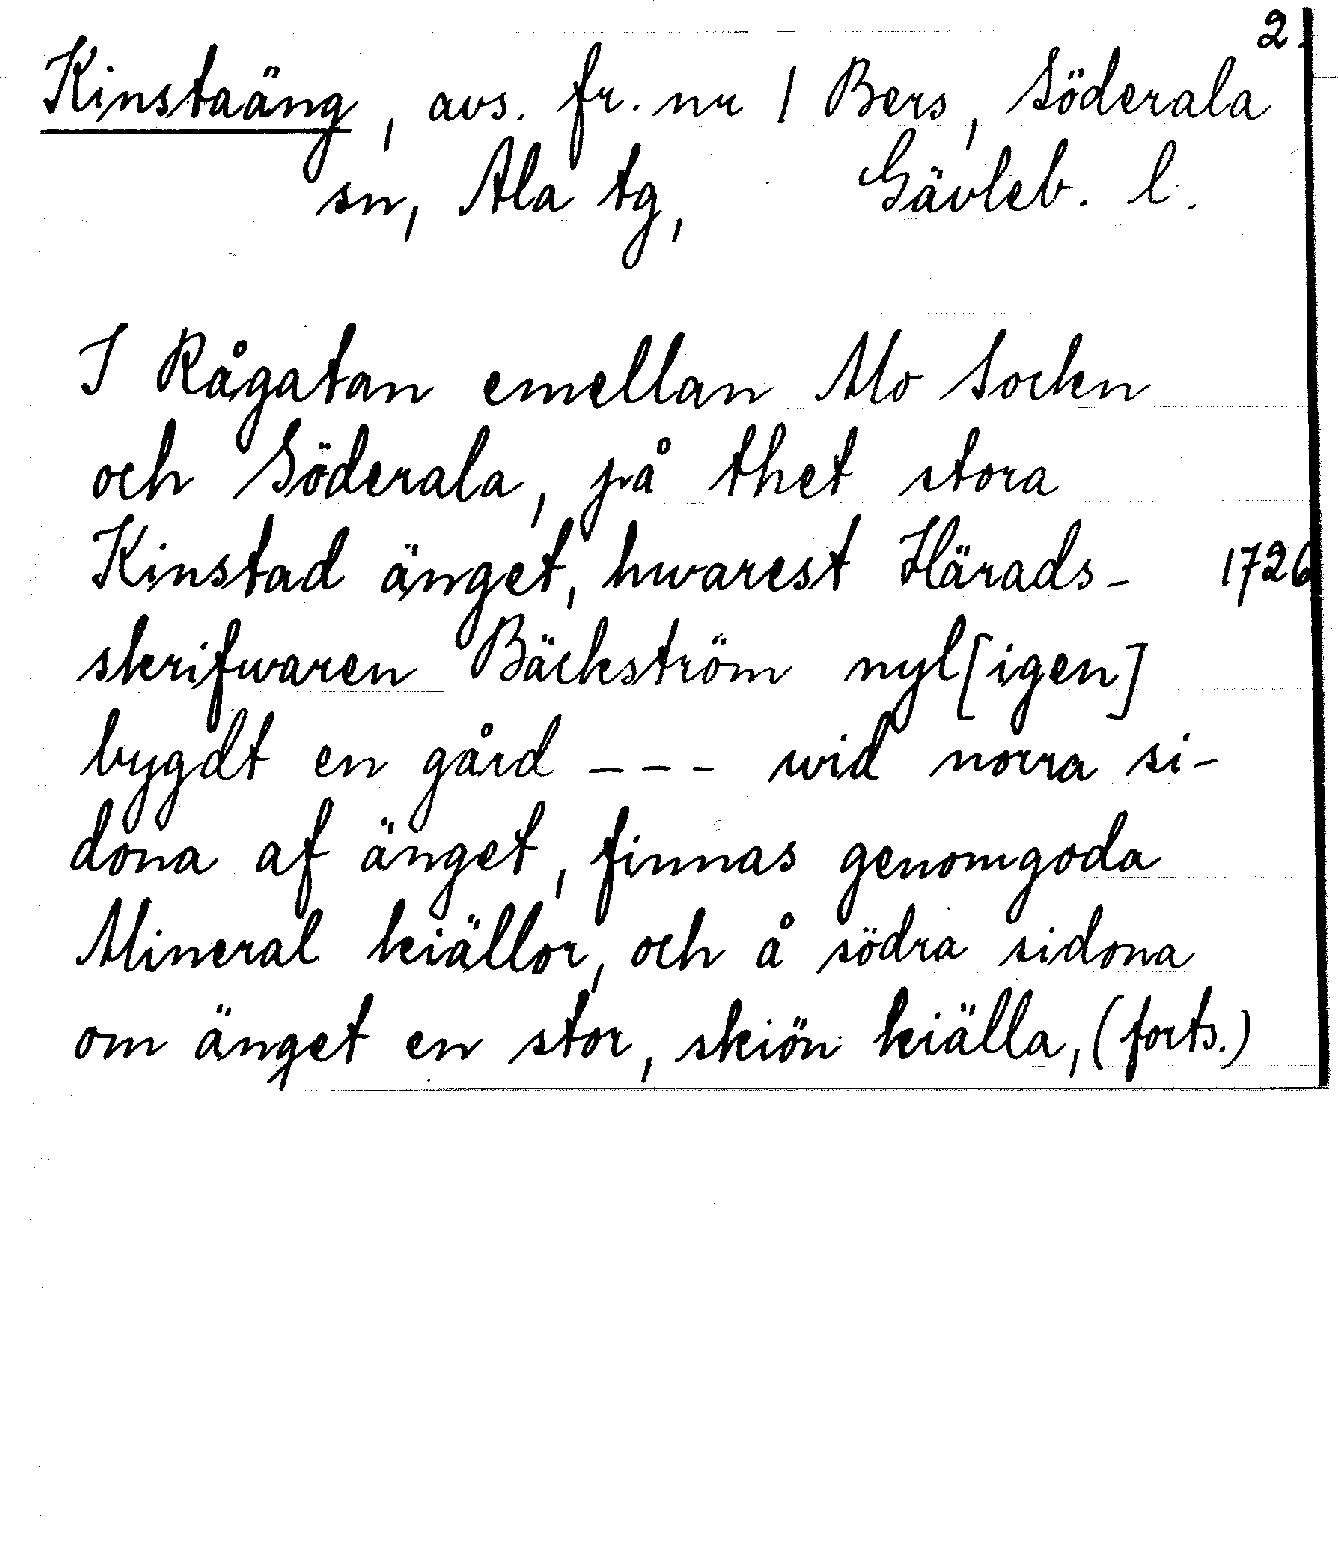 2.
Kinstaäng, avs. fr. nr 1 Bers, Söderala
sn, Ala tg, Gävleb. l.
I Rågatan emellan Mo Sockn
och Söderala, på thet stora
Kinstad änget, hwarest Härads- 1726
skrifwaren Bäckström nyl[igen]
bygdt en gård --- wid norra si-
dona af änget, finnas genomgoda
Mineral kiällor, och å södra sidona
om änget en stor, skiön kiälla, (forts.)